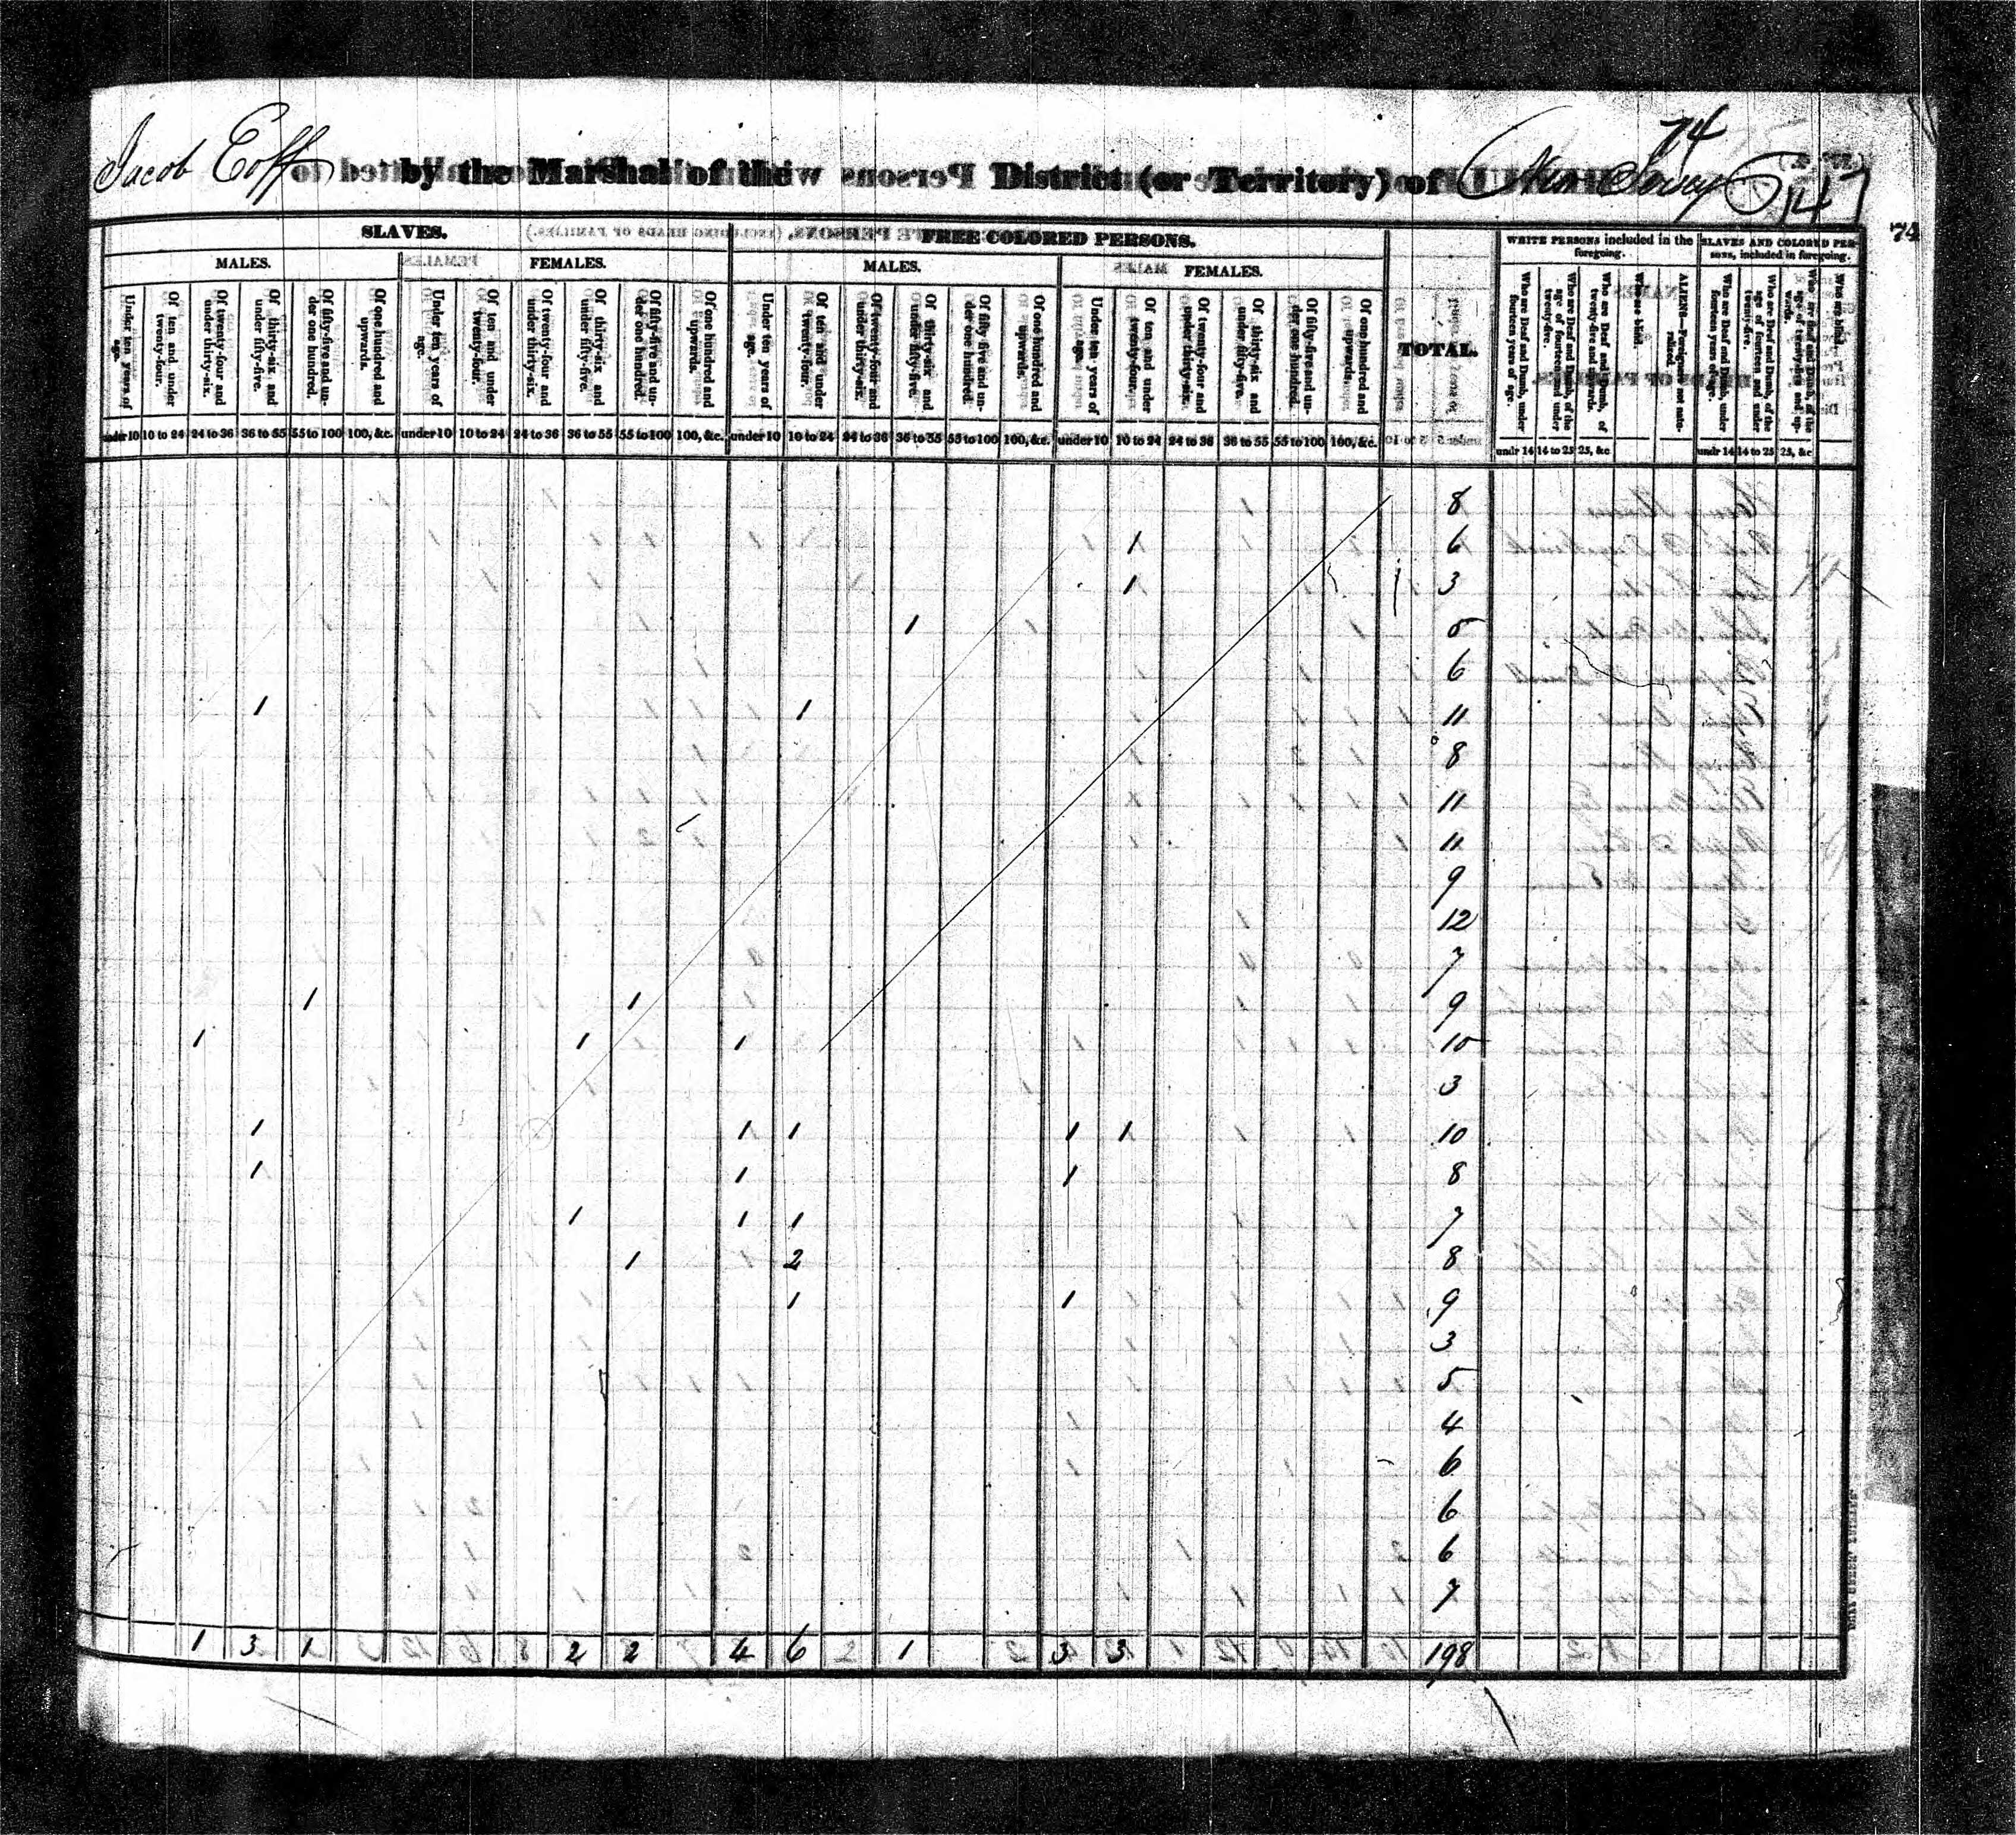 74
Jacob Eoff by the Marshal of the District (or Territory) of New Jersey 147
74
SLAVES. FREE COLORED PERSONS. TOTAL. WHITE PERSONS included in the foregoing. SLAVES AND COLORED PERSONS, included in foregoing.
MALES. FEMALES. MALES. FEMALES.
Under ten years of age. Of ten and under twenty-four. Of twenty-four and under thirty-six. Of thirty-six and under fifty-five. Of fifty-five and under one hundred. Of one hundred and upwards. Under ten years of age. Of ten and under twenty-four. Of twenty-four and under thirty-six. Of thirty-six and under fifty-five. Of fifty-five and under one hundred. Of one hundred and upwards. Under ten years of age. Of ten and under twenty-four. Of twenty-four and under thirty-six. Of thirty-six and under fifty-five. Of fifty-five and under one hundred. Of one hundred and upwards. Under ten years of age. Of ten and under twenty-four. Of twenty-four and under thirty-six. Of thirty-six and under fifty-five. Of fifty-five and under one hundred. Of one hundred and upwards. Who are Deaf and Dumb, under fourteen years of age. Who are Deaf and Dumb, of the age of fourteen and under twenty-five. Who are Deaf and Dumb, of twenty-five and upwards. Who are blind. ALIENS—Foreigners not naturalized. Who are Deaf and Dumb, under fourteen years of age. Who are Deaf and Dumb, of the age of fourteen and under twenty-five. Who are Deaf and Dumb, of the age of twenty-five and upwards. Who are blind.
under 10 10 to 24 24 to 36 36 to 55 55 to 100 100, &c. under 10 10 to 24 24 to 36 36 to 55 55 to 100 100, &c. under 10 10 to 24 24 to 36 36 to 55 55 to 100 100, &c. under 10 10 to 24 24 to 36 36 to 55 55 to 100 100, &c. undr 14 14 to 25 25, &c undr 14 14 to 25 25, &c
8
1 6
1 3
1 5
6
1 1 11
8
11
11
9
12
7
1 1 9
1 1 1 10
3
1 1 1 1 1 10
1 1 1 8
1 1 1 7
1 2 8
1 1 9
3
5
4
6
6
6
7
1 3 1 2 2 4 6 1 3 3 198